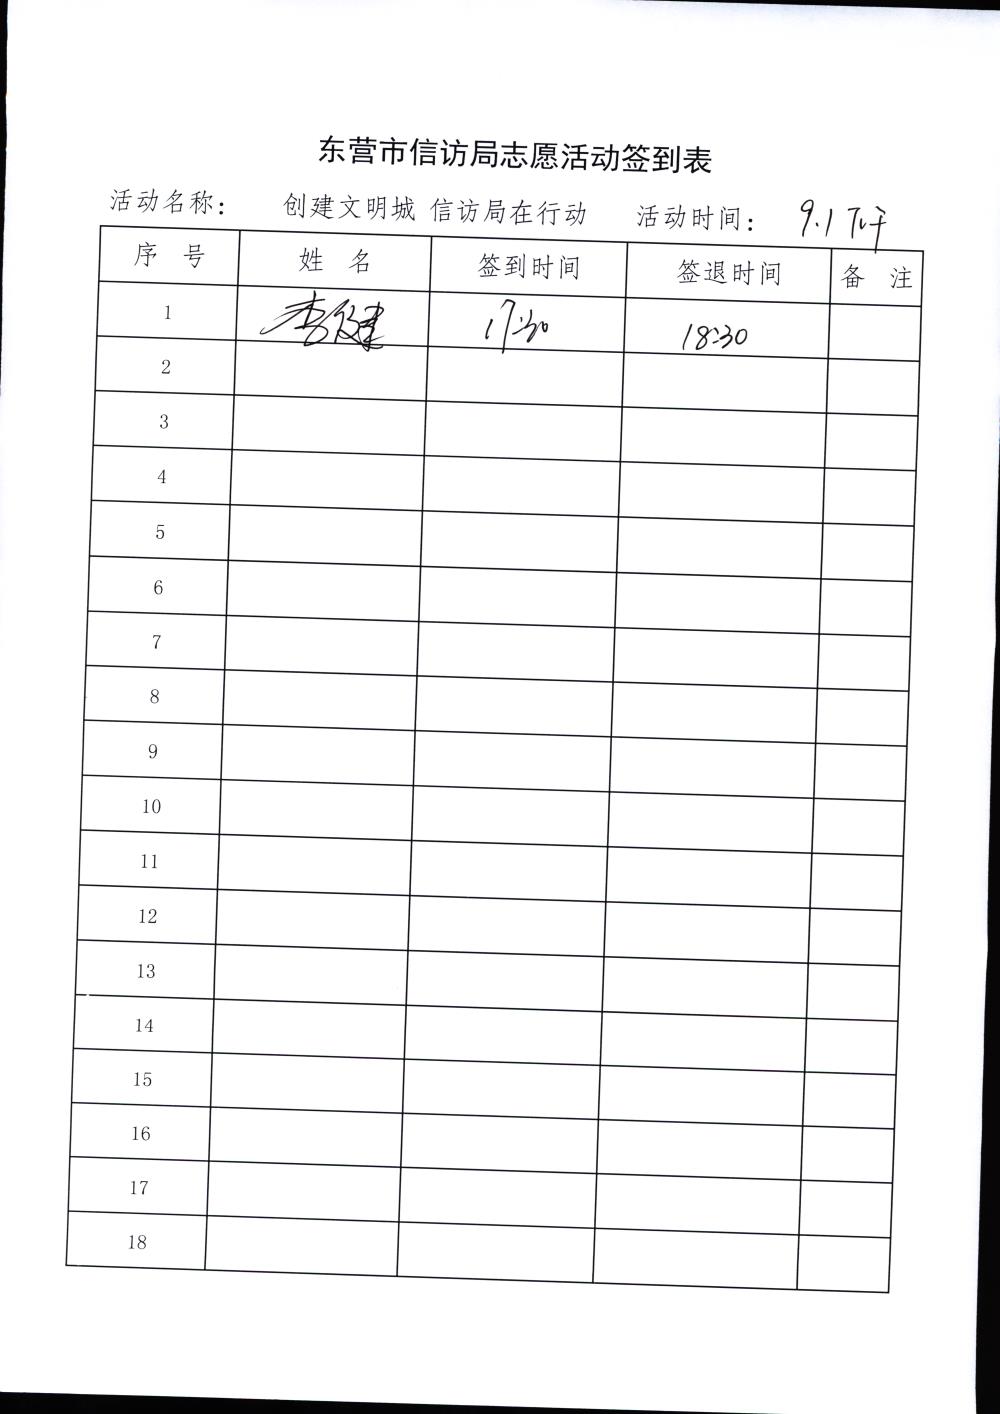 东营市信访局志愿活动签到表
活动名称： 创建文明城 信访局在行动 活动时间： 9.1 下午
序 号 姓 名 签到时间 签退时间 备 注
1 李俊建 17:30 18:30
2
3
4
5
6
7
8
9
10
11
12
13
14
15
16
17
18